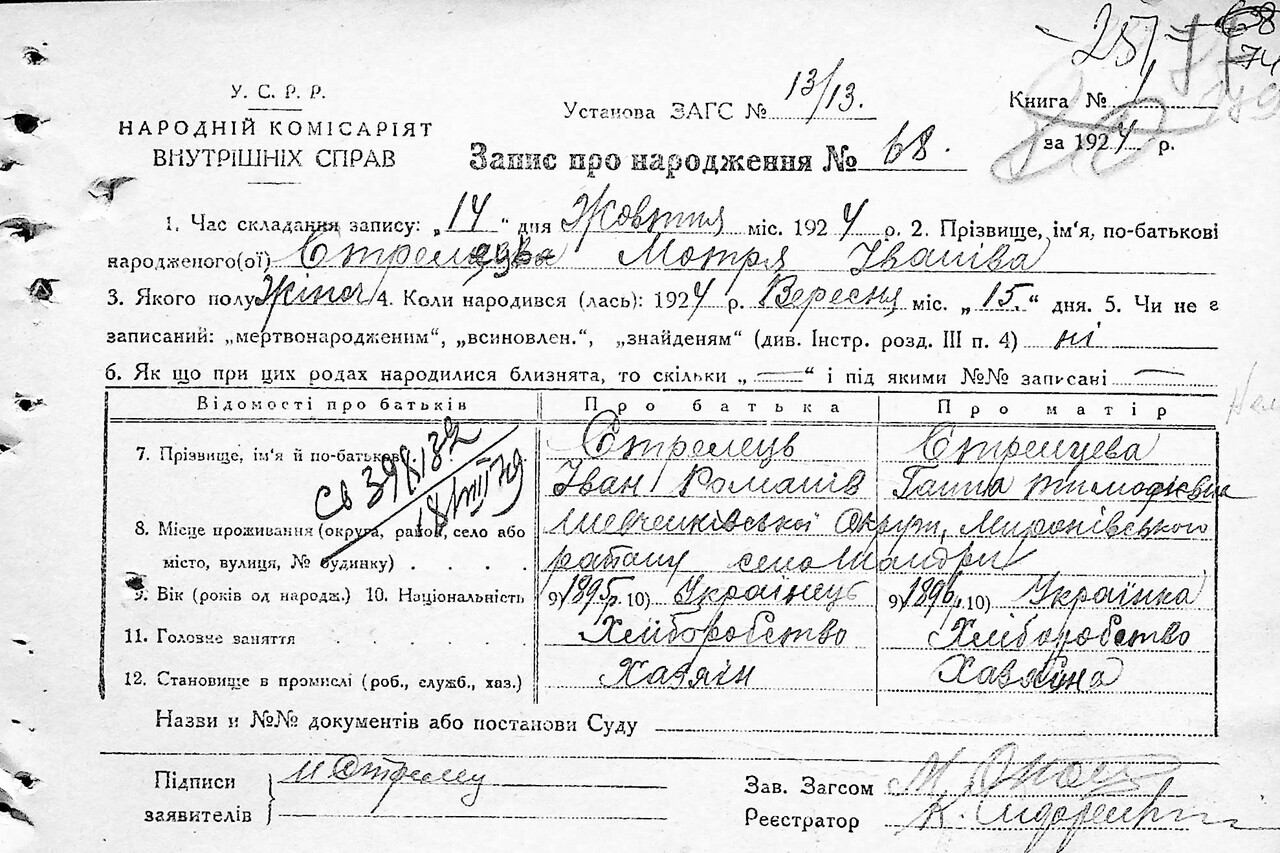 257
68
74
У. С. Р. Р.
НАРОДНІЙ КОМІСАРІЯТ
ВНУТРІШНІХ СПРАВ
Установа ЗАГС № 13/13.
Книга № 1
за 1924 р.
Запис про народження № 68.
1. Час складання запису: „14“ дня Жовтня міс. 1924 р. 2. Прізвище, ім'я, по-батькові
народженого(ої) Мотря Іванівa
3. Якого полу Жіноч 4. Коли народився (лась): 1924 р. Вересня міс. „15.“ дня. 5. Чи не є
записаний: „мертвонародженим“, „всиновлен.“, „знайденям“ (див. Інстр. розд. III п. 4) ні
6. Як що при цих родах народилися близнята, то скільки „—“ і під якими №№ записані —
Відомості про батьків Про батька Про матір
7. Прізвище, ім'я й по-батькові Стрелець Стрелцева
Іван Романів Ганна Тимофієвна
св 398132
18/VIII 79
8. Місце проживання (округа, район, село або Шевченківської Округи, Миронівського
місто, вулиця, № будинку) . . . . району село
9. Вік (років од народж.) 10. Національність 9) 1895 р. 10) Українець 9) 1896 р. 10) Українка
11. Головне заняття . . . . Хліборобство Хліборобство
12. Становище в промислі (роб., служб., хаз.) Хазяїн Хазяїна
Назви и №№ документів або постанови Суду
Підписи
заявителів
Зав. Загсом
Реєстратор К. Сидоренко